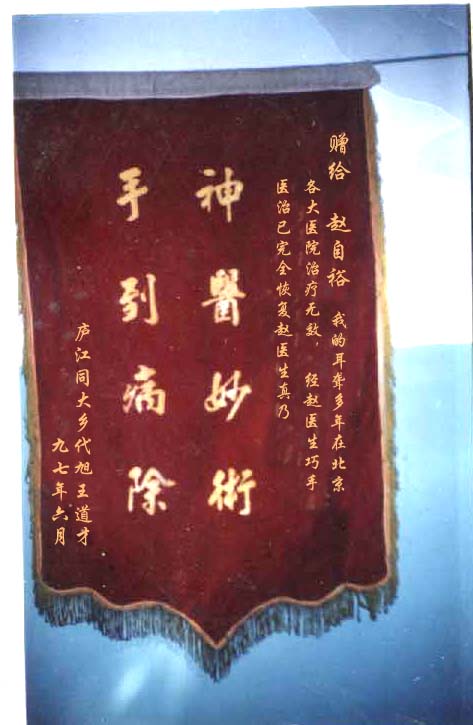 赠给 赵自裕 我的耳聋多年在北京
各大医院治疗无效，经赵医生巧手
医治已完全恢复赵医生真乃
神醫妙術
手到病除
庐江同大乡代旭王道才
九七年六月